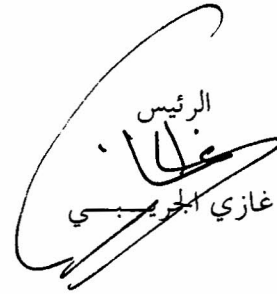 الرئيس
غازي الجريبي